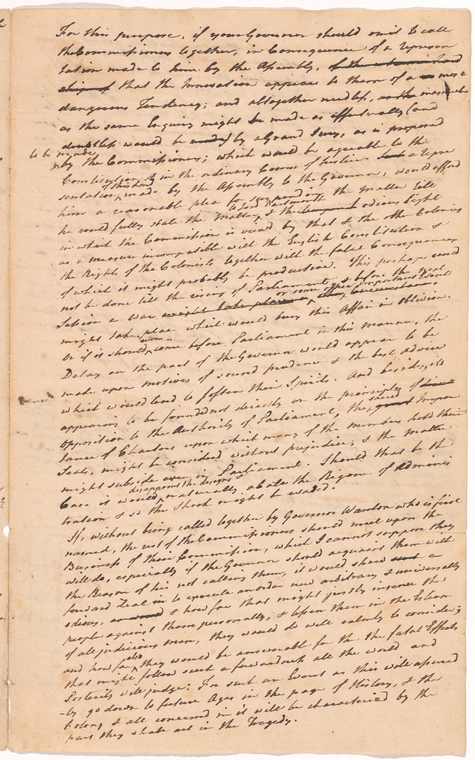 For this purpose, if your Governor should omit to call
the Commissioners together, in Consequence of a represen
tation made to him by the Assembly,
that the Innovation appears to them of a most
dangerous Tendency; and altogether needless, in as much
as the same Enquiry might be made as effectually (and
doubtless would be made) by a Grand Jury, as is proposed
to be made
by the Commissioners; which would be agreeable to the
Constitution & in the ordinary Course of Justice a repre
of this kind
sentation made by the Assembly to the Governor, would afford
him a reasonable plea for suspending the matter till
he could fully state the Matter to Lord Dartmouth & the odious Light
in which the Commission is viewd by that & the other Colonies
as a measure incompatible with the English Constitution &
the Rights of the Colonists together with the fatal Consequences
of which it might probably be productive. This perhaps could
not be done till the rising of Parliament, & before the next
Session a war or some other important Events
might take place which would bury this Affair in Oblivion.
Or if it should even come before Parliament in this manner, the
Delay on the part of the Governor would appear to be
made upon motives of sound prudence & the best advice
which would tend to soften their Spirits. And besides, its
appearing to be founded not directly on the principles of
opposition to the Authority of Parliament, the Impor
tance of Charters upon which many of the members hold their
Seats, might be considerd without prejudice, & the matter
might subside even in Parliament. Should that be the
Case it would disappoint the designs & naturally abate the Rigour of Adminis
tration & so the Shock might be evaded.
If, without being called together by Governor Wanton who is first
named, the rest of the Commissioners should meet upon the
Business of their Commission, which I cannot suppose they
will do, especially if the Governor should acquaint them with
the Reason of his not calling them, it would shew a
forward Zeal to execute an order new arbitrary & universally
odious, & how far that might justly incense the
people against them personally, & lessen them in the Esteem
of all judicious men, they would do well calmly to consider;
and how far also they would be answerable for the fatal Effects
that might follow such a forward step all the world and
Posterity will judge: For such an Event as this will assured
ly go down to future Ages in the page of History, & the
Colony & all concernd in it will be characterized by the
part they shall act in the Tragedy.